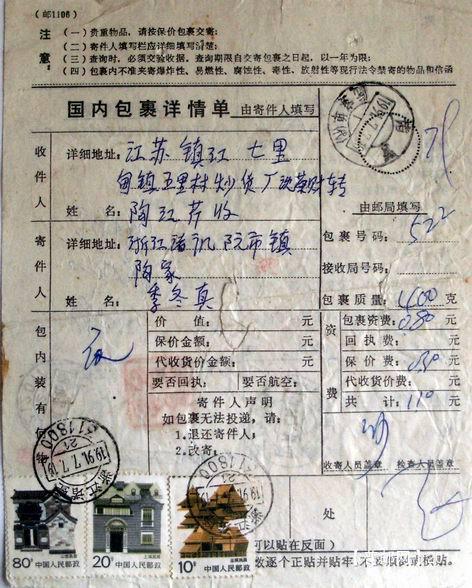 (邮1106)
注意：
(一) 贵重物品，请按保价包裹交寄；
(二) 寄件人填写栏应详细填写清楚；
(三) 查询时，必须交验收据。查询期限自交寄包裹之日起，以一年为限；
(四) 包裹内不准夹寄爆炸性、易燃性、腐蚀性、毒性、放射性等现行法令禁寄的物品和信函
国内包裹详情单 由寄件人填写
收件人
详细地址：江苏镇江七里
甸镇五里村炒货厂洪荣财转
姓名：陶江芹收
寄件人
详细地址：浙江诸訊阮市镇
陶家
姓名：季冬真
由邮局填写
包裹号码：522
接收局号码：
包裹质量：4600 克
包内装有何物
衣
价值：元
保价金额：元
代收货价金额：元
要否回执： 要否航空：
寄件人声明
如包裹无法投递，请：
1.退还寄件人；
2.改寄：
资费
包裹资费：0.80 元
回执费：元
保价费：030 元
代收货价费：元
共计：110 元
收寄人员盖章 检查人员盖章
311800
1991.7.19
浙江诸暨
311800
1991.7
处
可以贴在反面）
80分 中国人民邮政
20分 中国人民邮政
上海民居
10分 中国人民邮政